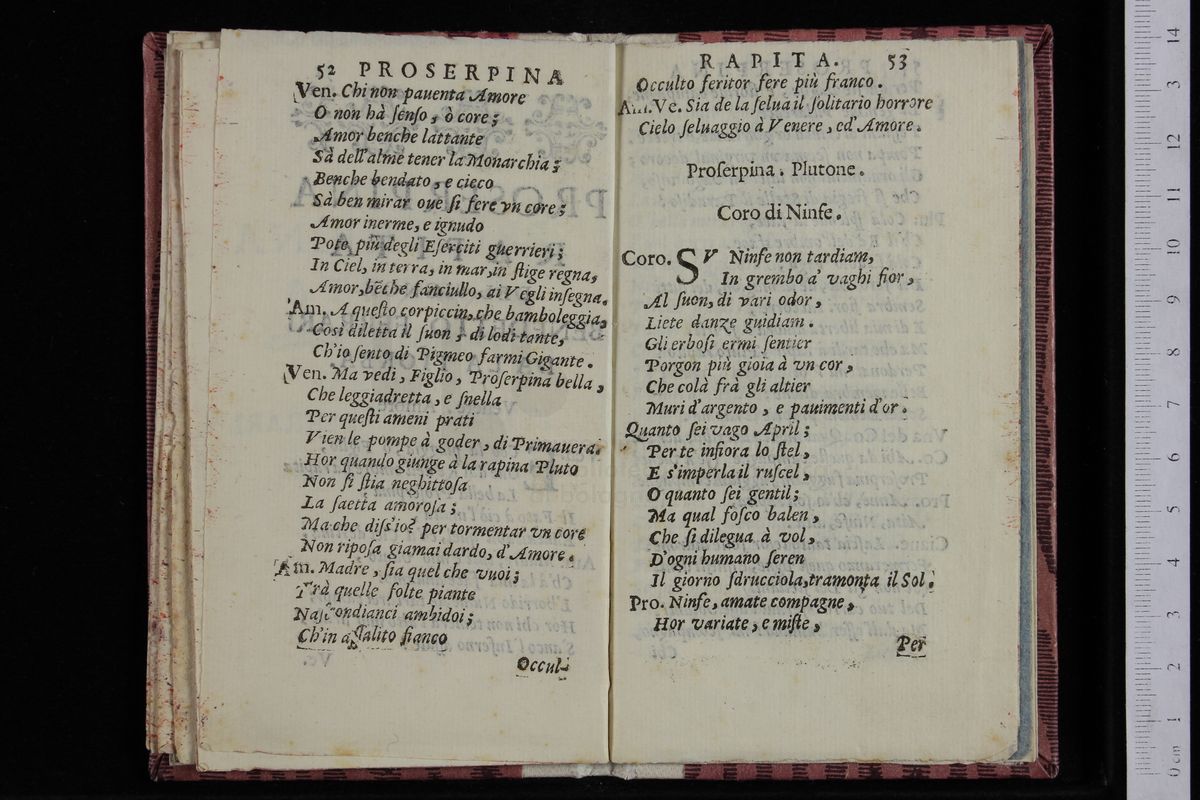 52 PROSERPINA
Ven. Chi non pauenta Amore
O non hà ſenſo, ò core;
Amor benche lattante
Sà dell'alme tener la Monarchia;
Benche bendato, e cieco
Sà ben mirar oue ſi fere vn core;
Amor inerme, e ignudo
Pote più degli Eſerciti guerrieri;
In Ciel, in terra, in mar, in ſtige regna,
Amor, bẽche fanciullo, ai Vegli inſegna.
Am. A queſto corpiccin, che bamboleggia,
Così diletta il ſuon, di lodi tante,
Ch'io ſento di Pigmeo farmi Gigante.
Ven. Ma vedi, Figlio, Proſerpina bella,
Che leggiadretta, e ſnella
Per queſti ameni prati
Vien le pompe à goder, di Primauera.
Hor quando giunge à la rapina Pluto
Non ſi ſtia neghittoſa
La ſaetta amoroſa;
Ma che diſs'io? per tormentar vn core
Non ripoſa giamai dardo, d'Amore.
Am. Madre, ſia quel che vuoi;
Trà quelle folte piante
Naſcondianci ambidoi;
Ch'in aſſalito fianco
Occul-
RAPITA. 53
Occulto feritor fere più franco.
Am. Ve. Sia de la ſelua il ſolitario horrore
Cielo ſeluaggio à Venere, ed'Amore.
Proſerpina. Plutone.
Coro di Ninfe.
Coro. SV Ninfe non tardiam,
In grembo a' vaghi fior,
Al ſuon, di vari odor,
Liete danze guidiam.
Gli erboſi ermi ſentier
Porgon più gioia à vn cor,
Che colà frà gli altier
Muri d'argento, e pauimenti d'or.
Quanto ſei vago April;
Per te infiora lo ſtel,
E s'imperla il ruſcel,
O quanto ſei gentil;
Ma qual foſco balen,
Che ſi dilegua à vol,
D'ogni humano ſeren
Il giorno ſdrucciola, tramonta il Sol.
Pro. Ninfe, amate compagne,
Hor variate, e miſte,
Per